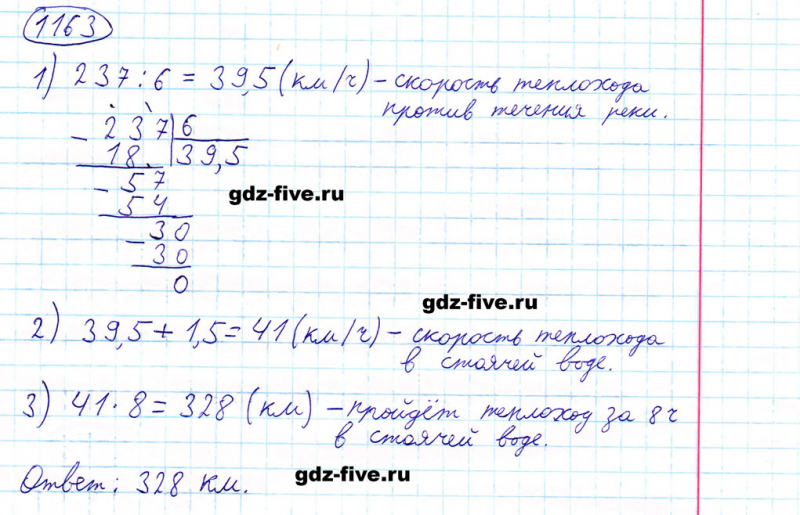 1163
1) 237 : 6 = 39,5 (км/ч) – скорость теплохода
против течения реки.
- 237 | 6
18 | 39,5
gdz-five.ru
- 57
54
- 30
30
0
gdz-five.ru
2) 39,5 + 1,5 = 41 (км/ч) – скорость теплохода
в стоячей воде.
3) 41 · 8 = 328 (км) – пройдёт теплоход за 8 ч
в стоячей воде.
Ответ: 328 км.
gdz-five.ru